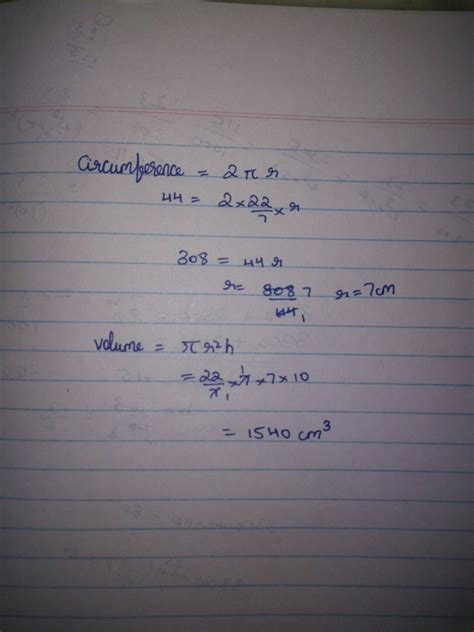 Circumference = 2πr
44 = 2 × 22/7 × r
308 = 44r
r = 308/44 7 1 r = 7cm
Volume = πr²h
= 22/7 1 × 7 1 × 7 × 10
= 1540 cm³